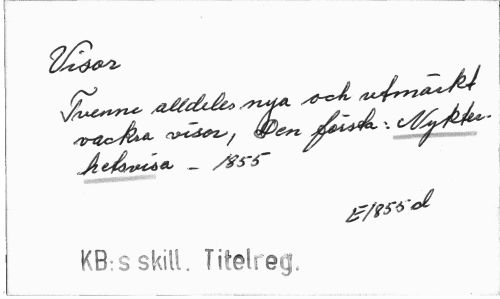 Visor
Tvenne alldeles nya och utmärkt
vackra visor, Den första: Nykter-
hetsvisa - 1855
E1855d
KB:s skill. Titelreg.